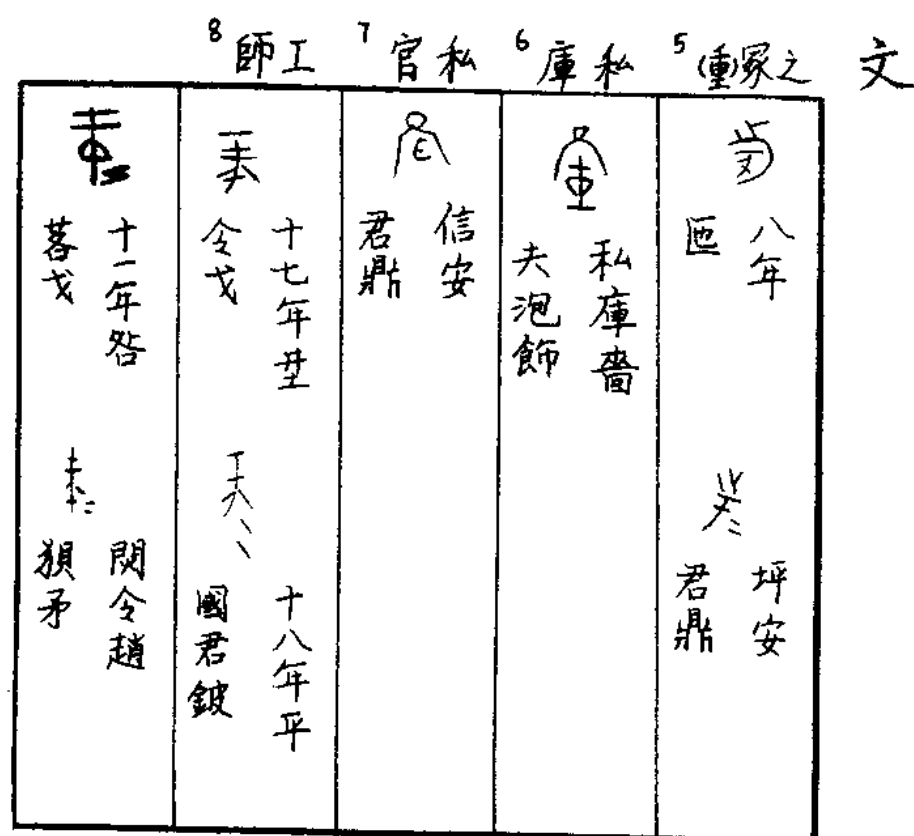 文
5 之冢(重)
6 私庫
7 私官
8 工師
八年
匜
坪安
君鼎
私庫嗇
夫泡飾
信安
君鼎
十七年
令戈
十八年平
國君鈹
十一年咎
茖戈
閔令趙
狽矛